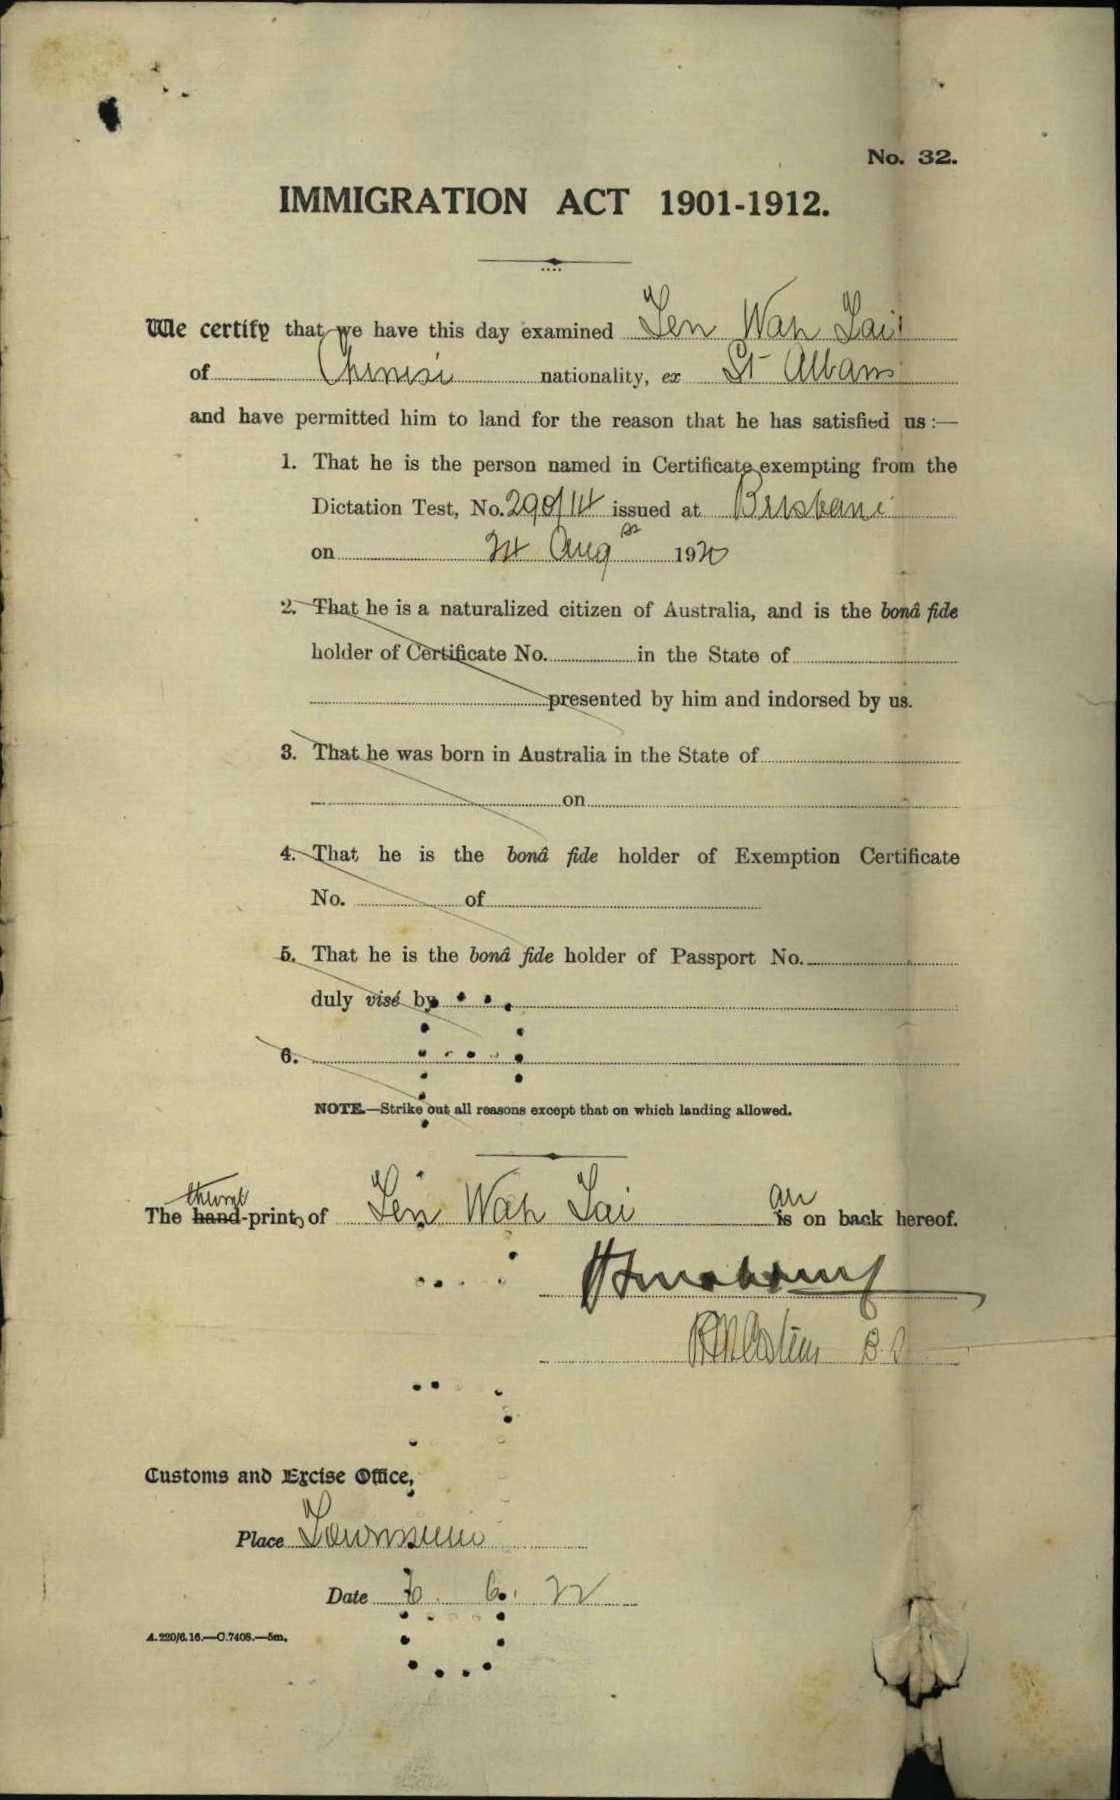 No. 32.
IMMIGRATION ACT 1901-1912.
We certify that we have this day examined Len Wah Lai
of Chinese nationality, ex St Albans
and have permitted him to land for the reason that he has satisfied us :—
1. That he is the person named in Certificate exempting from the
Dictation Test, No. 290/14 issued at Brisbane
on 24 Aug 1920
2. That he is a naturalized citizen of Australia, and is the bonâ fide
holder of Certificate No. in the State of
presented by him and indorsed by us.
3. That he was born in Australia in the State of
on
4. That he is the bonâ fide holder of Exemption Certificate
No. of
5. That he is the bonâ fide holder of Passport No.
duly visé by
6.
NOTE.—Strike out all reasons except that on which landing allowed.
thumb are
The hand-prints of Len Wah Lai is on back hereof.
Customs and Excise Office,
Place Townsville
Date 6. 22
A.220/6.16.—C.7408.—5m.